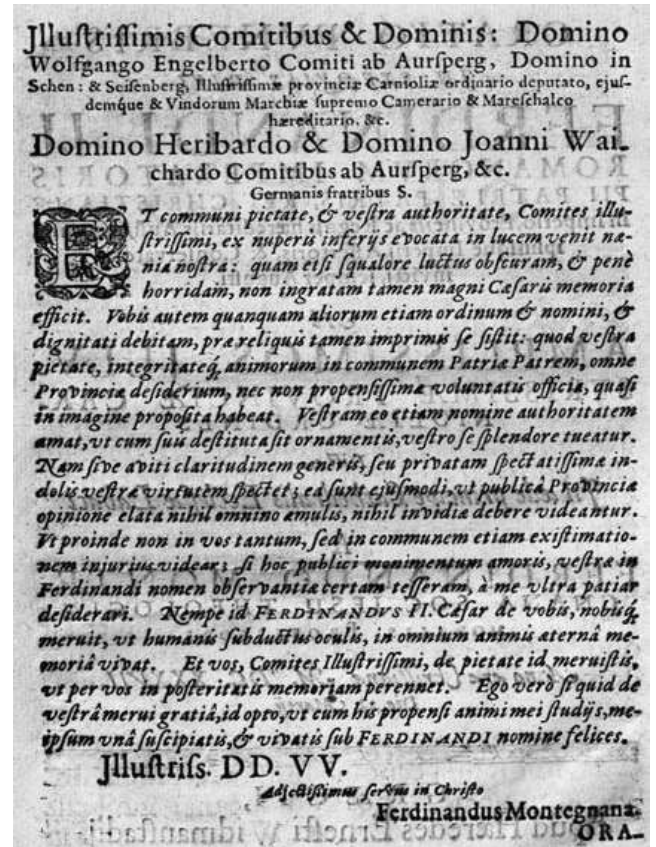 Jlluſtriſſimis Comitibus & Dominis: Domino
Wolfgango Engelberto Comiti ab Aurſperg, Domino in
Schen: & Seiſenberg, Illuſtriſſimæ provinciæ Carnioliæ ordinario deputato, ejuſ-
demq́ue & Vindorum Marchiæ ſupremo Camerario & Mareſchalco
hæreditario. &c.
Domino Heribardo & Domino Joanni Wai-
chardo Comitibus ab Aurſperg, &c.
Germanis fratribus S.
ET communi pietate, & veſtra authoritate, Comites illu-
ſtriſſimi, ex nuperis inferijs evocata in lucem venit næ-
nia noſtra: quam etſi ſqualore luctus obſcuram, & penè
horridam, non ingratam tamen magni Cæſaris memoria
efficit. Vobis autem quanquam aliorum etiam ordinum & nomini, &
dignitati debitam, præ reliquis tamen imprimis ſe ſiſtit: quod veſtra
pietate, integritateq́, animorum in communem Patriæ Patrem, omne
Provinciæ deſiderium, nec non propenſiſſimæ voluntatis officia, quaſi
in imagine propoſita habeat. Veſtram eo etiam nomine authoritatem
amat, vt cum ſuis deſtituta ſit ornamentis, veſtro ſe ſplendore tueatur.
Nam ſive aviti claritudinem generis, ſeu privatam ſpectatiſſimæ in-
dolis veſtræ virtutem ſpectet; ea ſunt ejuſmodi, vt publicâ Provinciæ
opinione elata nihil omnino æmulis, nihil invidiæ debere videantur.
Vt proinde non in vos tantum, ſed in communem etiam exiſtimatio-
nem injurius videar; ſi hoc publici monimentum amoris, veſtræ in
Ferdinandi nomen obſervantiæ certam teſſeram, à me vltra patiar
deſiderari. Nempe id FERDINANDVS II. Cæſar de vobis, nobisq́,
meruit, vt humanis ſubductus oculis, in omnium animis æternâ me-
moriâ vivat. Et vos, Comites Illuſtriſſimi, de pietate id meruiſtis,
vt per vos in poſteritatis memoriam perennet. Ego verò ſi quid de
veſtrâ merui gratiâ, id opto, vt cum his propenſi animi mei ſtudijs, me-
ipſum vnâ ſuſcipiatis, & vivatis ſub FERDINANDI nomine felices.
Jlluſtriſs. DD. VV.
Adjectiſſimus ſervus in Chriſto
Ferdinandus Montegnana.
ORA-